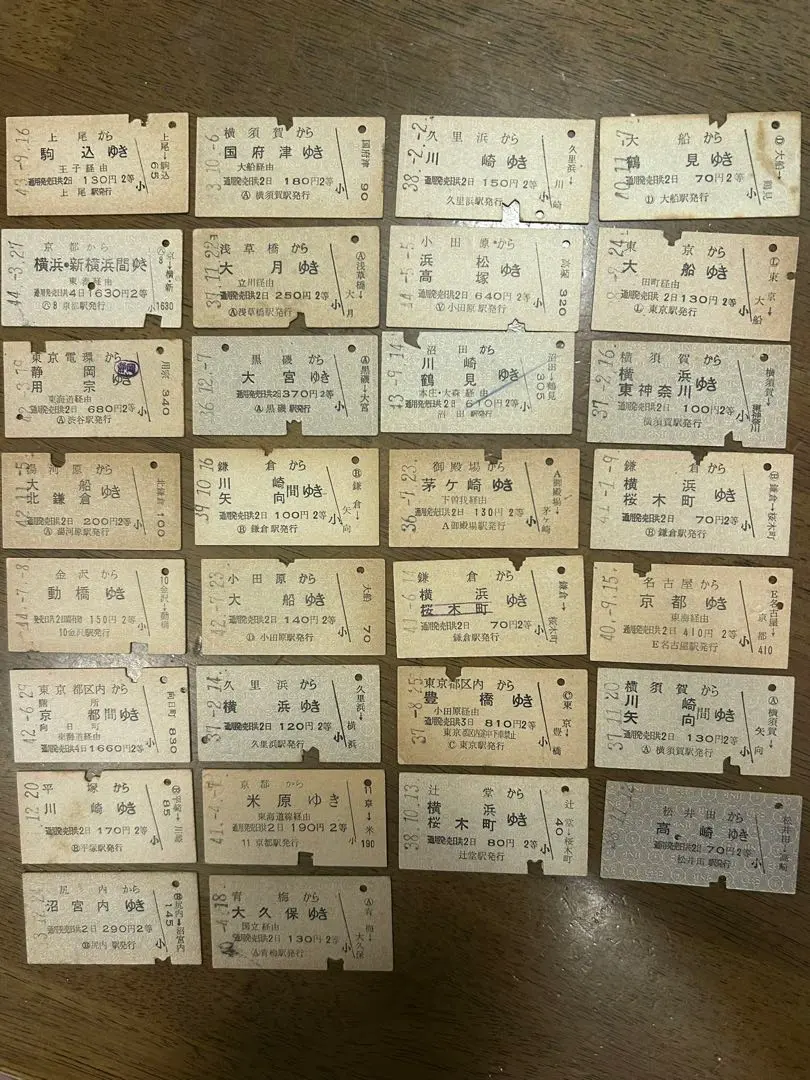 43.-9.16
上尾から
駒込ゆき
王子経由
通用発売日共2日 130円 2等
上尾駅発行
小
上尾→駒込
65
横須賀から
国府津ゆき
大船経由
通用発売日共2日 180円 2等
Ⓐ横須賀駅発行
小
国府津
90
38.-2.-2.
久里浜から
川崎ゆき
通用発売日共2日 150円 2等
久里浜駅発行
小
久里浜→川崎
大船から
鶴見ゆき
通用発売日共2日 70円 2等
Ⓓ大船駅発行
小
Ⓓ大船→鶴見
44.-3.27
京都から
横浜・新横浜間ゆき
東海経由
通用発売日共4日 1630円 2等
Ⓐ8 京都駅発行
小1630
浅草橋から
大月ゆき
立川経由
通用発売日共2日 250円 2等
Ⓐ浅草橋駅発行
小
Ⓐ浅草橋→大月
小田原から
浜松
高塚 ゆき
通用発売日共2日 640円 2等
Ⓥ小田原駅発行
小
高塚
320
東京から
大船ゆき
田町経由
通用発売日共2日 130円 2等
Ⓛ東京駅発行
小
Ⓛ東京→大船
東京電環から
静岡
用宗 ゆき
東海道経由
通用発売日共2日 680円 2等
Ⓐ渋谷駅発行
小
用宗
340
黒磯から
大宮ゆき
通用発売日共2日 370円 2等
Ⓐ黒磯駅発行
小
Ⓐ黒磯→大宮
43.-9.14
沼田から
川崎
鶴見 ゆき
本庄・大森経由
通用発売日共2日 610円 2等
沼田駅発行
小
沼田→鶴見
305
37.-2.16.
横須賀から
横浜
東神奈川 ゆき
通用発売日共2日 100円 2等
横須賀駅発行
小
横須賀→東神奈川
42.11.-5
湯河原から
大船
北鎌倉 ゆき
通用発売日共2日 200円 2等
Ⓐ湯河原駅発行
小
北鎌倉
100
39.10.16
鎌倉から
川崎
矢向 間ゆき
通用発売日共2日 100円 2等
Ⓑ鎌倉駅発行
小
Ⓑ鎌倉→矢向
36.-7.23.
御殿場から
茅ケ崎ゆき
下曽我経由
通用発売日共2日 130円 2等
A御殿場駅発行
小
A御殿場→茅ケ崎
鎌倉から
横浜
桜木町 ゆき
通用発売日共2日 70円 2等
Ⓑ鎌倉駅発行
小
Ⓑ鎌倉→桜木町
44.-7.-8
金沢から
動橋ゆき
発売日共2日間有効 150円 2等
10金沢駅発行
小
10金沢→動橋
42.-7.23
小田原から
大船ゆき
通用発売日共2日 140円 2等
Ⓓ小田原駅発行
小
大船
70
鎌倉から
横浜
桜木町 ゆき
通用発売日共2日 70円 2等
鎌倉駅発行
小
鎌倉→桜木町
40.-9.15
名古屋から
京都ゆき
東海経由
通用発売日共2日 410円 2等
E名古屋駅発行
小
E名古屋→京都
410
42.-6.29
東京都区内から
膳所
京都 間ゆき
向日町
東海道経由
通用発売日共4日 1660円 2等
小
向日町
830
37.-2.14.
久里浜から
横浜ゆき
通用発売日共2日 120円 2等
久里浜駅発行
小
久里浜→横浜
37.-8.25
東京都区内から
豊橋ゆき
小田原経由
通用発売日共3日 810円 2等
東京都区内途中下車禁止
Ⓒ東京駅発行
小
Ⓒ東京→豊橋
37.11.20
横須賀から
川崎
矢向 間ゆき
通用発売日共2日 130円 2等
Ⓐ横須賀駅発行
小
Ⓐ横須賀→矢向
12.20
平塚から
川崎ゆき
通用発売日共2日 170円 2等
Ⓑ平塚駅発行
小
Ⓑ平塚→川崎
85
京都から
米原ゆき
東海道線経由
通用発売日共2日 190円 2等
11 京都駅発行
小
京→米
190
38.10.13.
辻堂から
横浜
桜木町 ゆき
通用発売日共2日 80円 2等
辻堂駅発行
小
辻堂→桜木町
40
松井田から
高崎ゆき
通用発売日共2日 70円 2等
松井田駅発行
小
松井田→高崎
尻内から
沼宮内ゆき
通用発売日共2日 290円 2等
尻内駅発行
小
尻内→沼宮内
145
青梅から
大久保ゆき
国立経由
通用発売日共2日 130円 2等
Ⓐ青梅駅発行
小
Ⓐ青梅→大久保